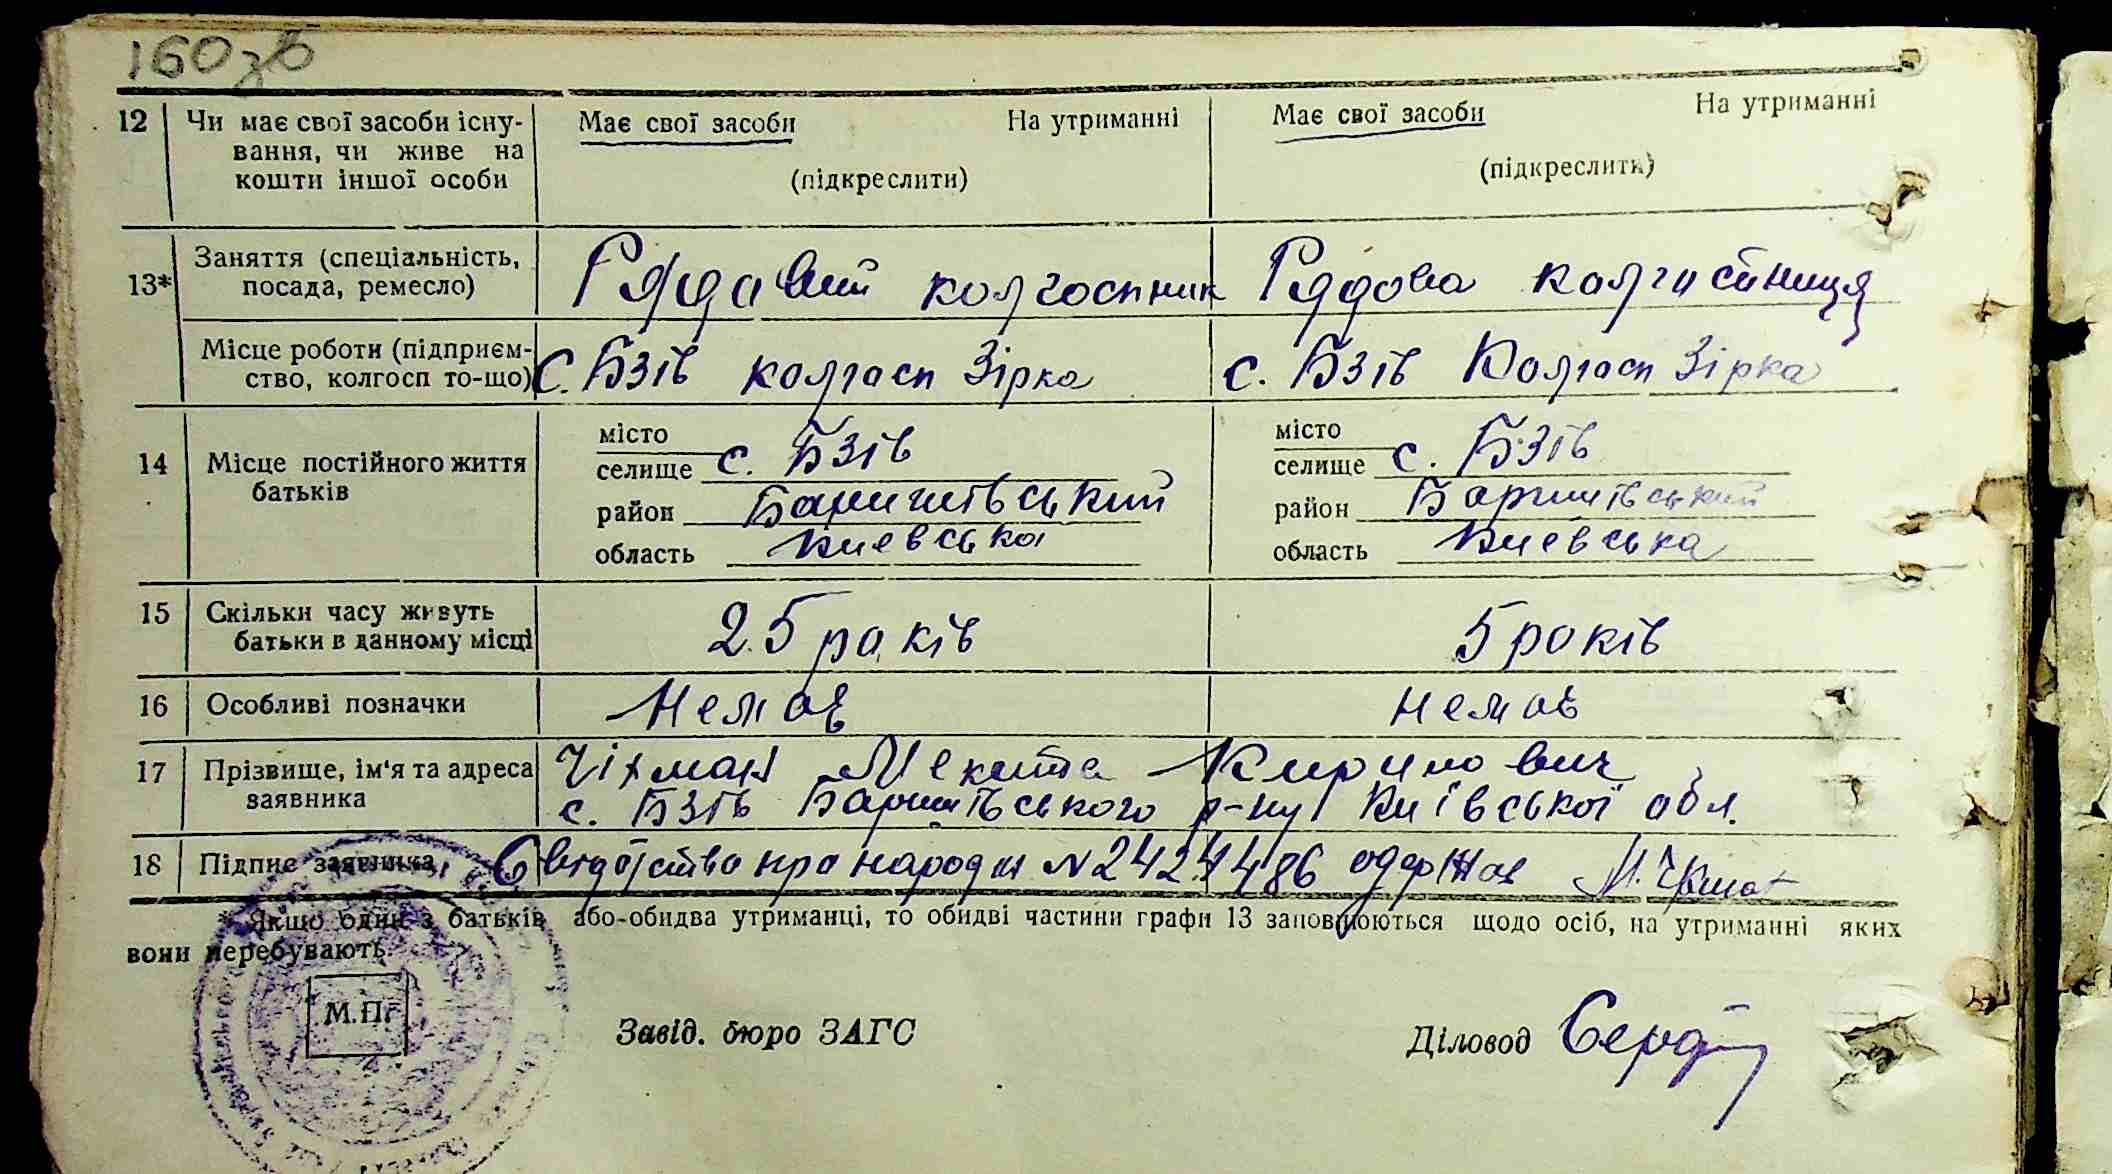 160зв
12 Чи має свої засоби існу- Має свої засоби На утриманні Має свої засоби На утриманні
вання, чи живе на
кошти іншої особи (підкреслити) (підкреслити)
13* Заняття (спеціальність, Рядавий колгоспник Рядова колгоспниця
посада, ремесло)
Місце роботи (підприєм- с. Бзів колгосп Зірка с. Бзів Колгосп Зірка
ство, колгосп то-що)
14 Місце постійного життя місто місто
батьків селище с. Бзів селище с. Бзів
район Баришівський район Баришівський
область Киевська область Киевська
15 Скільки часу живуть 25 років 5 років
батьки в данному місці
16 Особливі позначки Немає немає
17 Прізвище, ім'я та адреса Чіхман Микита Кирилович
заявника с. Бзів Баришівського р-ну Київської обл.
18 Підпис заявника Свідоство про народ № 2424486 одержав
* Якщо один з батьків або-обидва утриманці, то обидві частини графи 13 заповнюються щодо осіб, на утриманні яких
вони перебувають.
М.П.
Завід. бюро ЗАГС Діловод